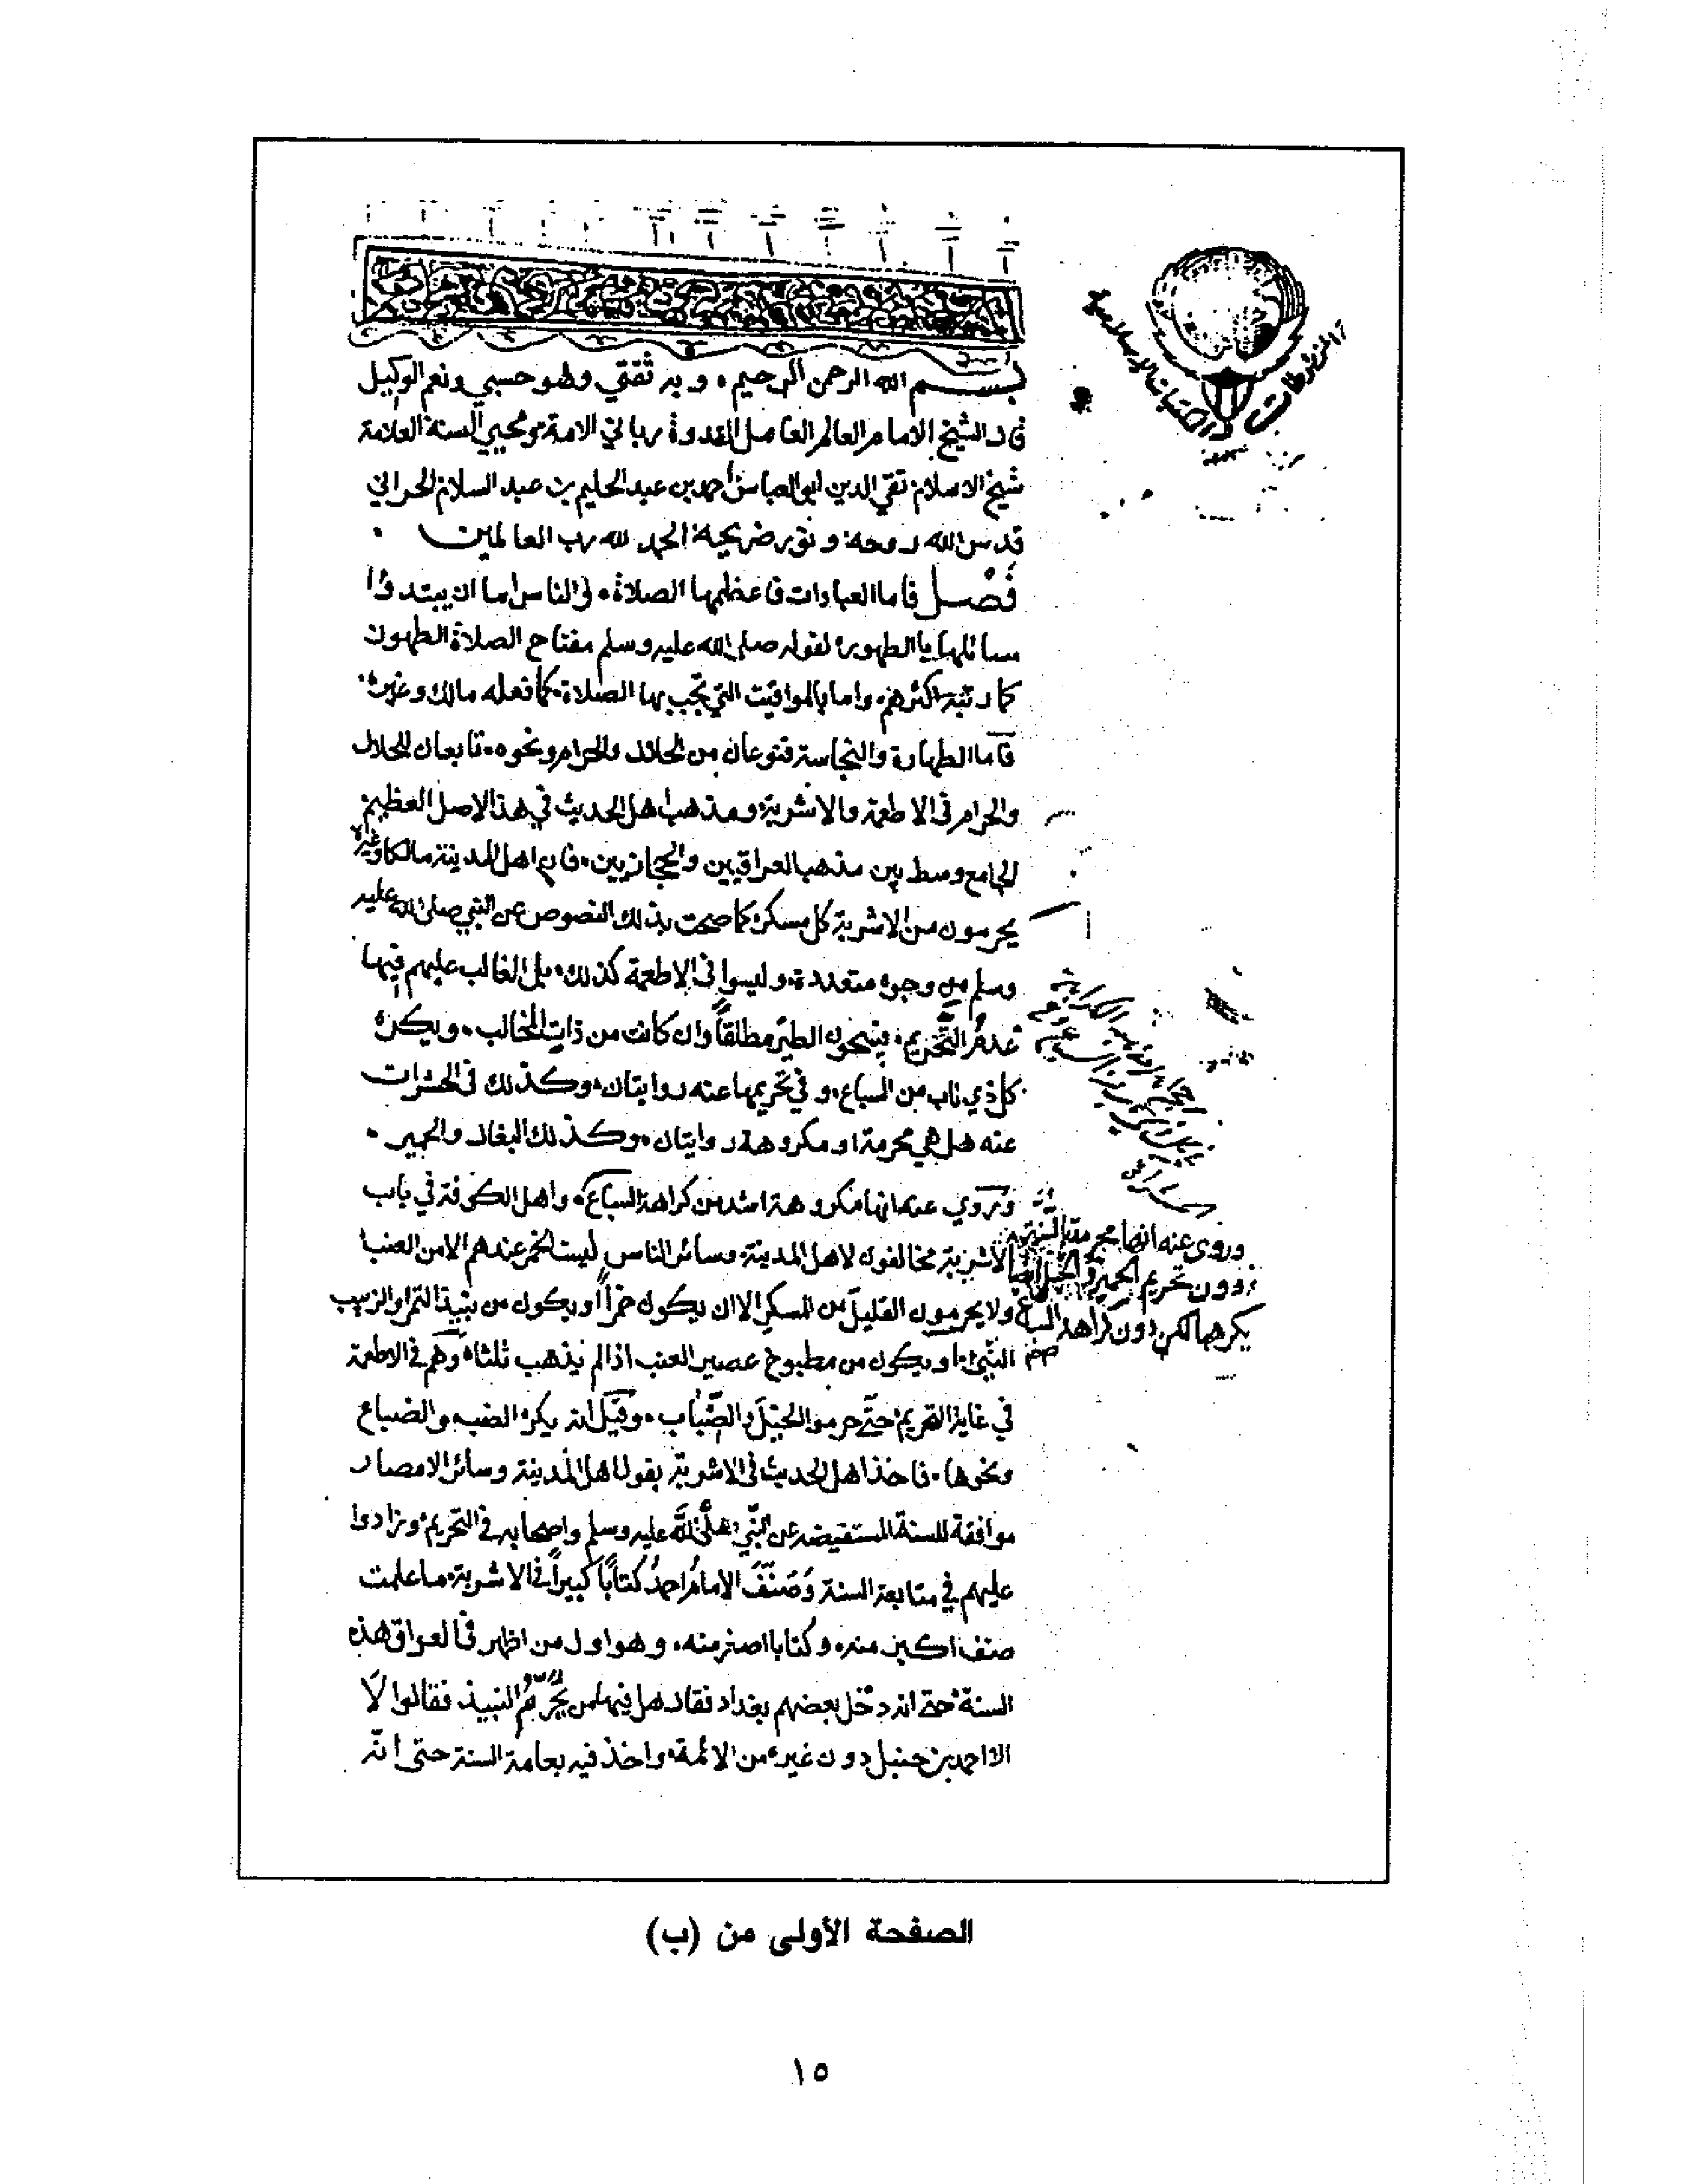 بسم الله الرحمن الرحيم ۰ و به ثقتي وهو حسبي ونعم الوكيل
قال الشيخ الامام العالم العامل القدوة رباني الامة ومحيي السنة العلامة
شيخ الاسلام تقي الدين ابو العباس احمد بن عبد الحليم بن عبد السلام الحراني
قدس الله روحه ونور ضريحه الحمد لله رب العالمين
فَصْل فاما العبادات فاعظمها الصلاة ۰ والناس اما ان يبتدؤا
مسائلها بالطهور لقوله صلى الله عليه وسلم مفتاح الصلاة الطهور
كما رتبه اكثرهم ۰ واما بالمواقيت التي تجب بها الصلاة كما فعله مالك وغيره
فاما الطهارة والنجاسة فنوعان من الحلال والحرام ونحوه ۰ تابعان للحلال
والحرام في الاطعمة والاشربة ومذهب اهل الحديث في هذا الاصل العظيم
الجامع وسط بين مذهب العراقيين والحجازيين ۰ فان اهل المدينة مالكا وغيره
يحرمون من الاشربة كل مسكر كما صحت بذلك النصوص عن النبي صلى الله عليه
وسلم من وجوه متعددة ۰ وليسوا في الاطعمة كذلك ۰ بل الغالب عليهم فيها
عدمُ التَّحريم ۰ فيبيحون الطير مطلقاً وان كانت من ذات المخالب ۰ ويكره
كل ذي ناب من السباع ۰ و في تحريمها عنه روايتان ۰ وكذلك في الحشرات
عنه هل هي محرمة او مكروهة روايتان ۰ وكذلك البغال والحمير ۰
وروي عنه انها مكروهة اشد من كراهة السباع ۰ واهل الكوفة في باب
الاشربة مخالفون لاهل المدينة وسائر الناس ليست الخمر عندهم الا من العنب
ولا يحرمون القليل من المسكر الا ان يكون خمراً او يكون من نبيذ التمر او الزبيب
النيّئ ۰ او يكون من مطبوخ عصير العنب اذا لم يذهب ثلثاه وهم في الاطعمة
في غاية التحريم حتى حرموا الخيل والضّباب ۰ وقيل انه يكره الضب والضباع
ونحوها ۰ فاخذ اهل الحديث في الاشربة بقول اهل المدينة وسائر الامصار
موافقة للسنة المستفيضة عن النّبي صلى الله عليه وسلم واصحابه في التحريم وزادوا
عليهم في متابعة السنة وَصَنَّفَ الامامُ احمدُ كتاباً كبيراً في الاشربة ما علمت
صنف اكبر منه ۰ وكتابا اصغر منه ۰ وهو اول من اظهر في العراق هذه
السنة حتى انه دخل بعضهم بغداد فقال هل فيها من يُحرّمُ النبيذ فقالوا لا
الا احمد بن حنبل دون غيره من الائمة واخذ فيه بعامة السنة حتى انه
وروي عنه انها محرمة
دون تحريم الحمير والخيل ايضا
يكرهها لكن دون كراهة السباع
الصفحة الأولى من (ب)
١٥